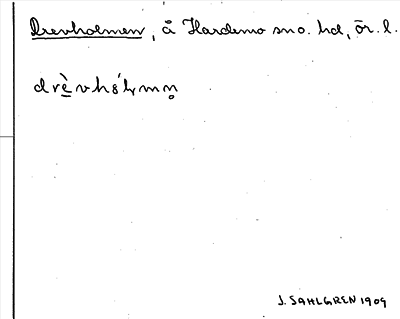 Drevholmen, å Hardemo sno. hd, ör. l.
J. SAHLGREN 1909